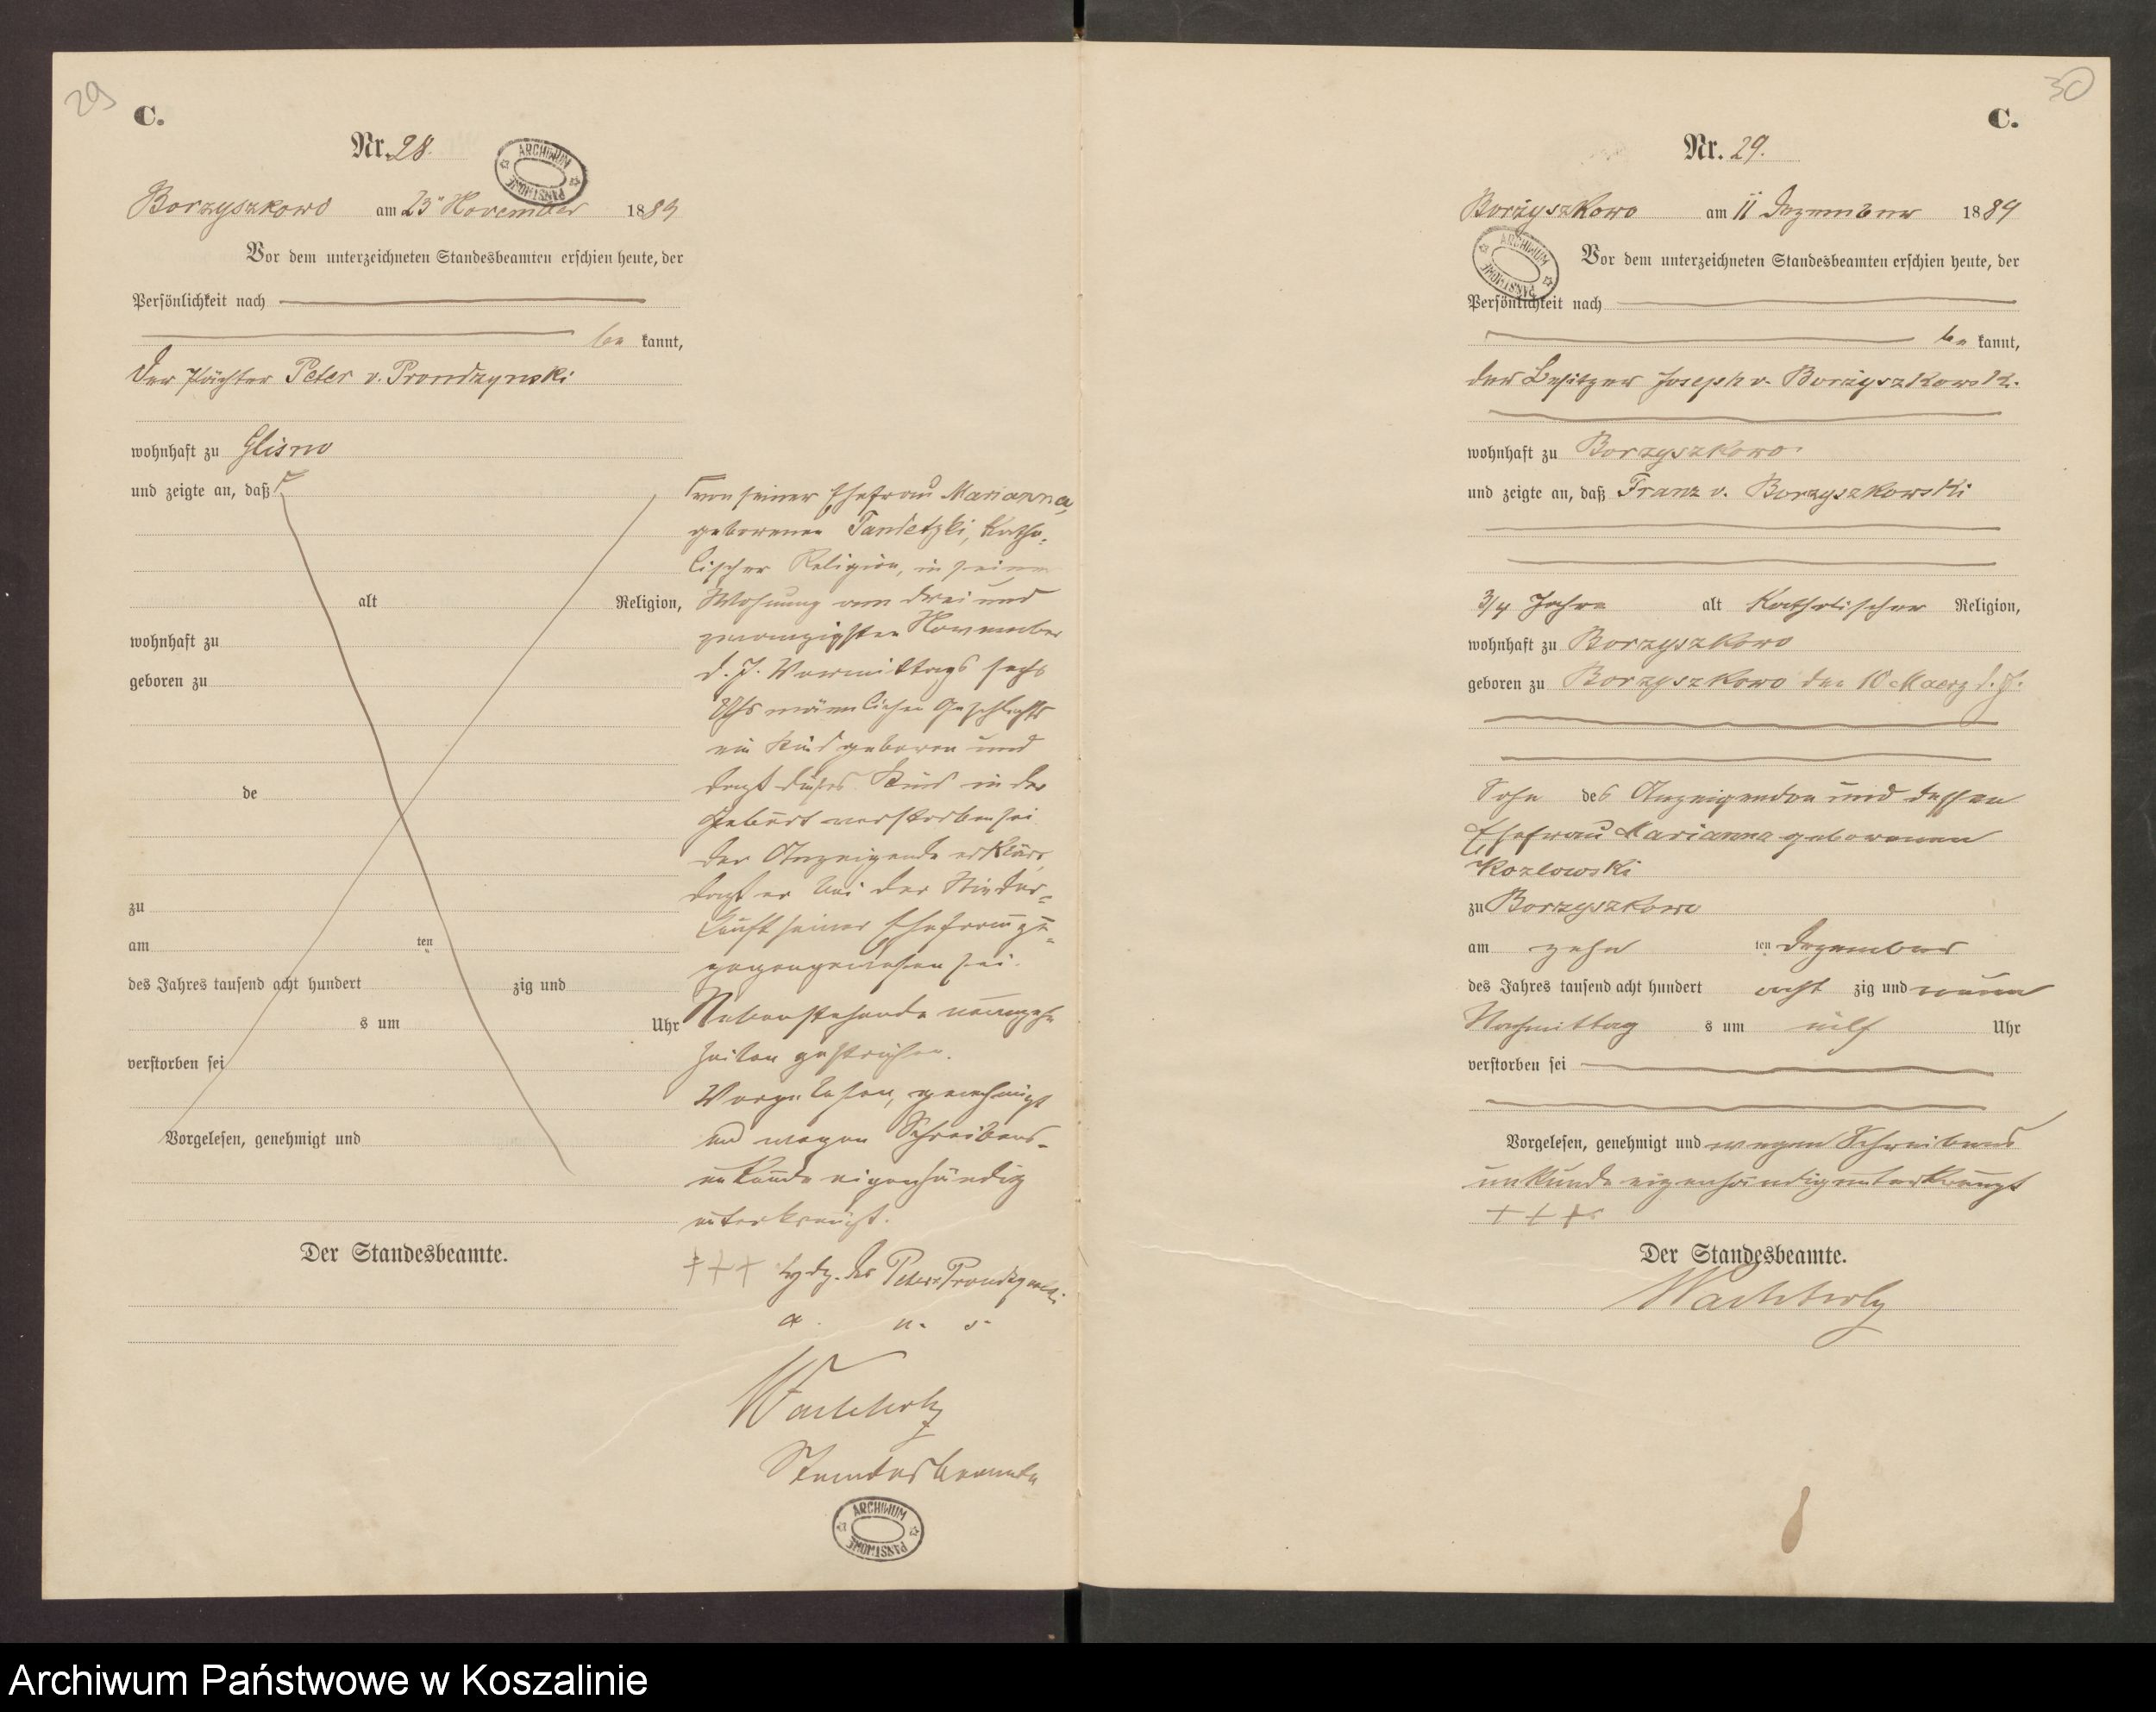 29
C.
Nr. 28.
ARCHIWUM PAŃSTWOWE
Borzyszkowo am 23ten November 1889
Vor dem unterzeichneten Standesbeamten erschien heute, der
Persönlichkeit nach
be kannt,
der Pächter Peter v. Prondzynski
wohnhaft zu Glisno
und zeigte an, daß
alt Religion,
wohnhaft zu
geboren zu
de
zu
am ten
des Jahres tausend acht hundert zig und
s um Uhr
verstorben sei
Vorgelesen, genehmigt und
Der Standesbeamte.
von seiner Ehefrau Marianna,
geborenen Tandetzki, katho-
lischer Religion, in seiner
Wohnung am drei und
zwanzigsten November
d. J. Vormittags sechs
Uhr männlichen Geschlechts
ein Kind geboren und
daß dieses Kind in der
Geburt verstorben sei
der Anzeigende erklärt,
daß er bei der Nieder-
kunft seiner Ehefrau zu-
gegen gewesen sei.
Nebenstehende neunzehn
Zeilen gestrichen.
Vorgelesen, genehmigt
und wegen Schreibens-
unkunde eigenhändig
unterkreuzt.
+++ hdz. des Peter v Prondzynski
a. u. s.
Wachholz
Standesbeamte
ARCHIWUM PAŃSTWOWE
30
C.
Nr. 29.
Borzyszkowo am 11 Dezember 1889
ARCHIWUM PAŃSTWOWE
Vor dem unterzeichneten Standesbeamten erschien heute, der
Persönlichkeit nach
be kannt,
der Besitzer Joseph v. Borzyszkowski
wohnhaft zu Borzyszkowo.
und zeigte an, daß Franz v. Borzyszkowski
3/4 Jahre alt katholischer Religion,
wohnhaft zu Borzyszkowo
geboren zu Borzyszkowo den 10 Maerz d. J.
Sohn des Anzeigenden und dessen
Ehefrau Marianna geborenen
Kozlowski
zu Borzyszkowo
am zehn ten Dezember
des Jahres tausend acht hundert acht zig und neun
Nachmittag s um elf Uhr
verstorben sei
Vorgelesen, genehmigt und wegen Schreibens
unkunde eigenhändig unterkreuzt
+++
Der Standesbeamte.
Wachholz
Archiwum Państwowe w Koszalinie